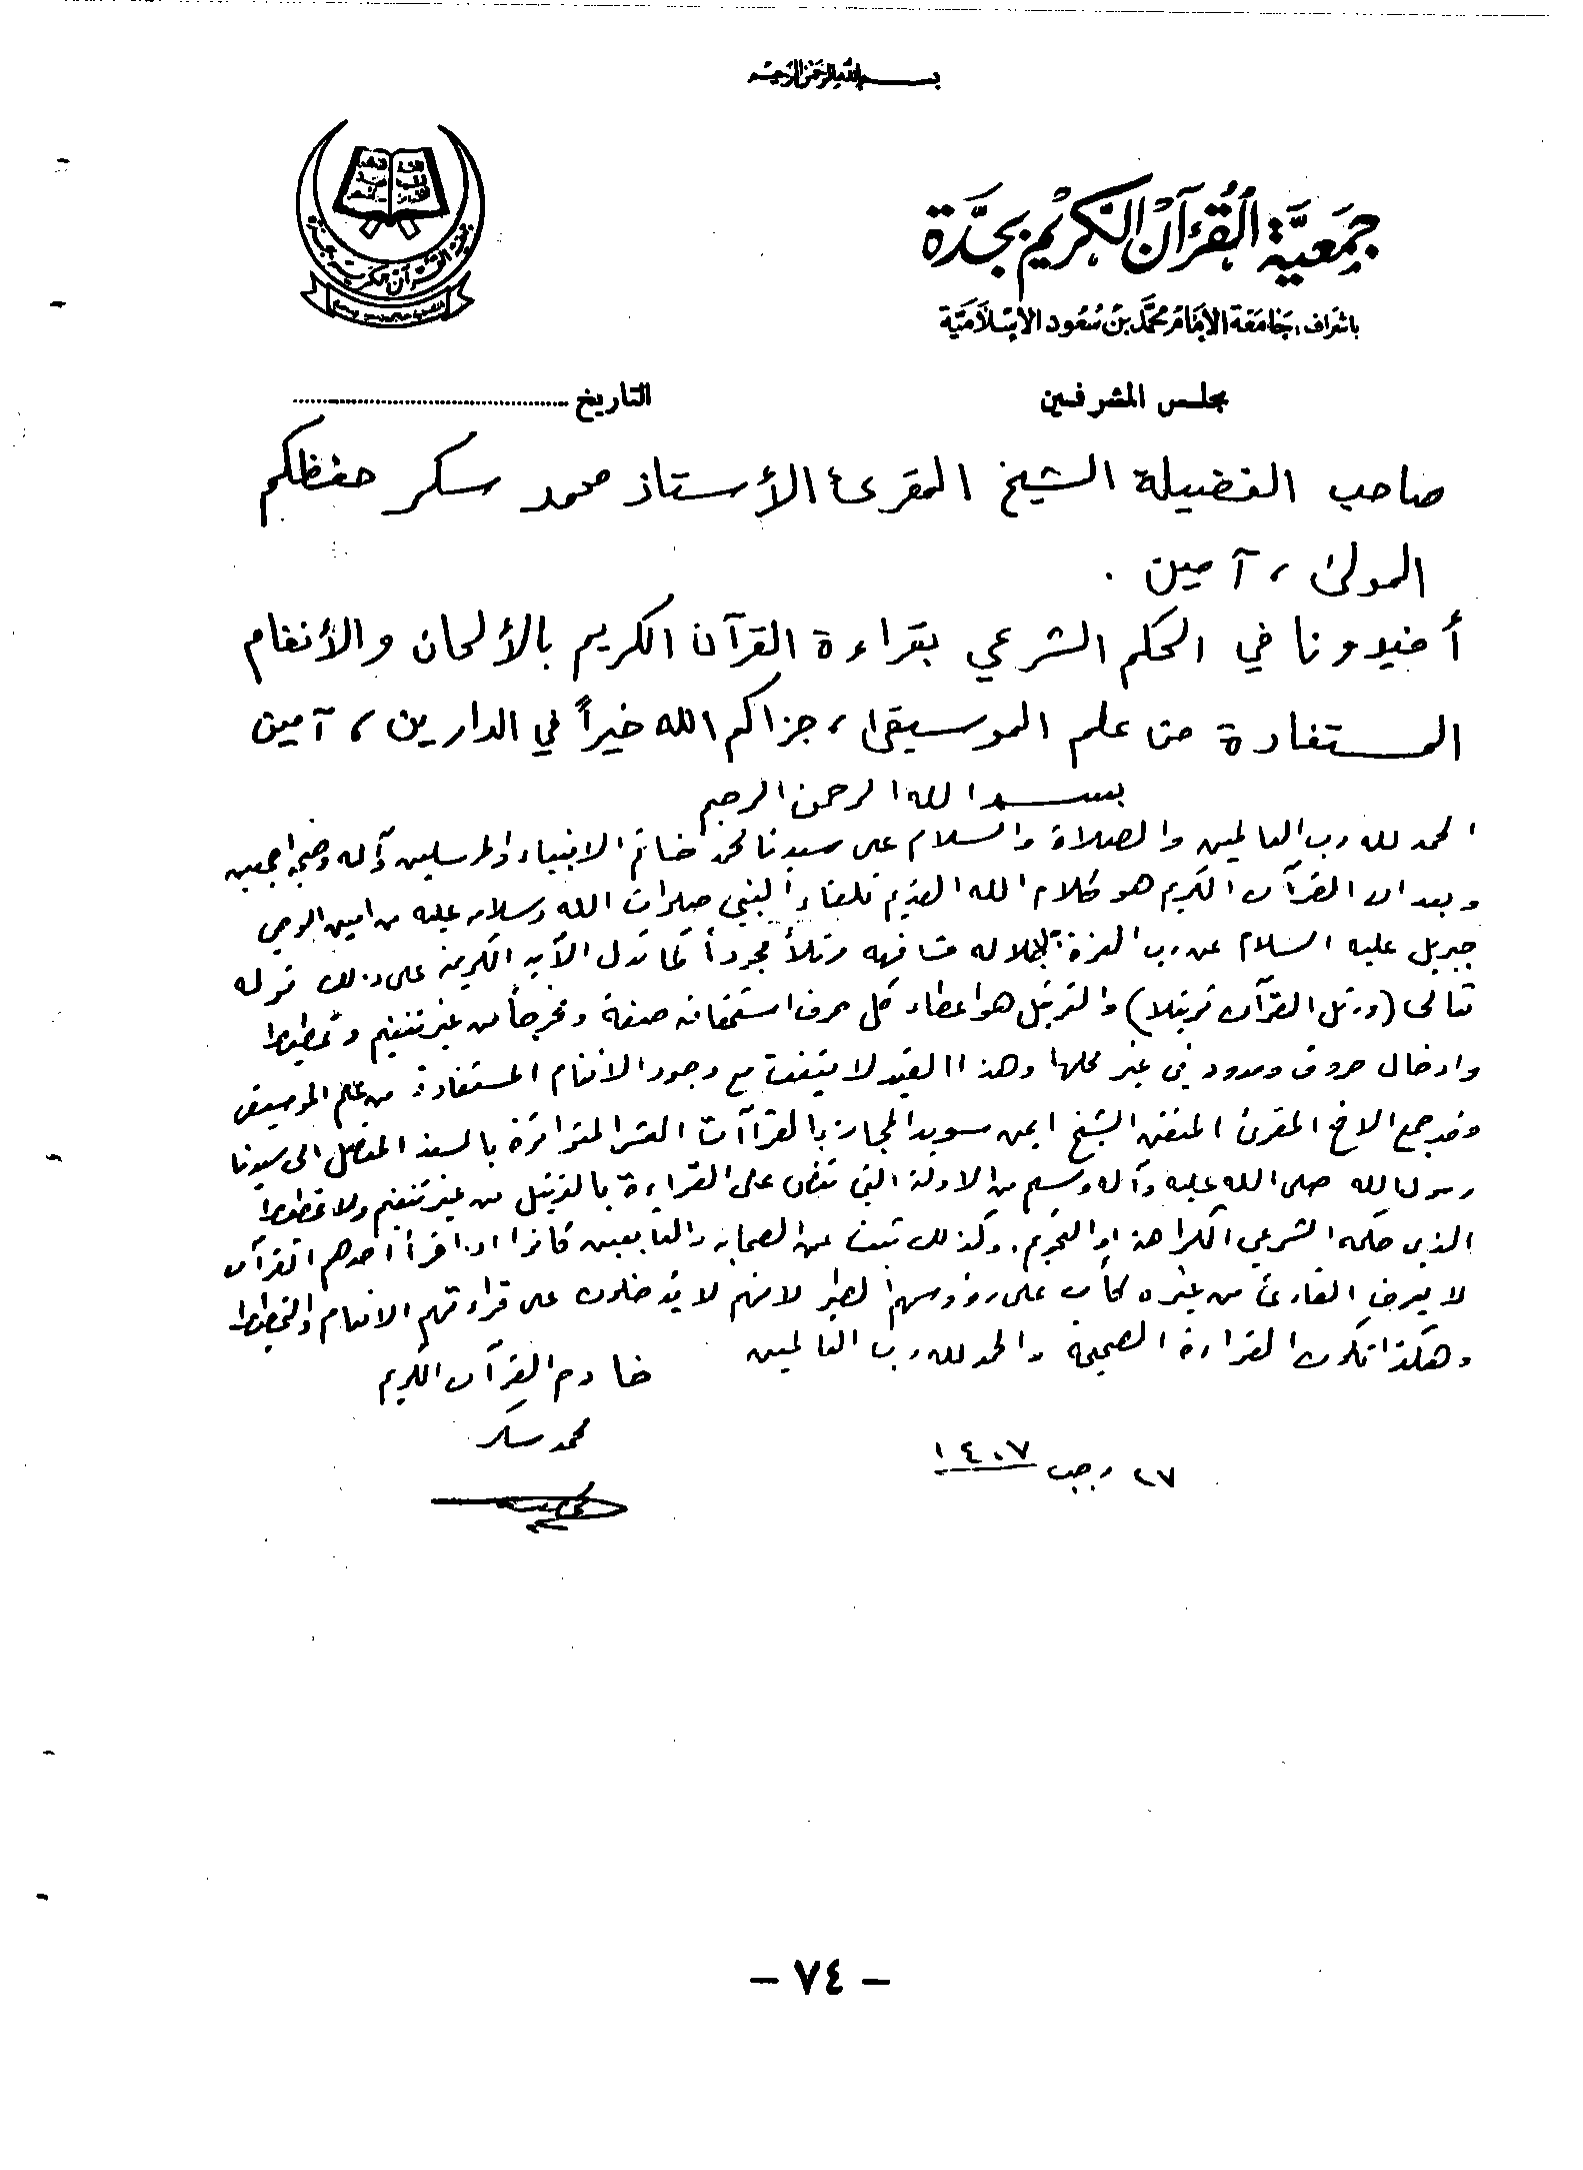 بسم الله الرحمن الرحيم
جمعية القرآن الكريم بجدة
باشراف: جامعة الإمام محمد بن سعود الإسلامية
مجلس المشرفين
التاريخ
صاحب الفضيلة الشيخ المقرئ الأستاذ محمد سكر حفظكم
المولى ، آمين .
أفيدونا في الحكم الشرعي بقراءة القرآن الكريم بالألحان والأنغام
المستفادة من علم الموسيقى ، جزاكم الله خيراً في الدارين ، آمين
بسم الله الرحمن الرحيم
الحمد لله رب العالمين والصلاة والسلام على سيدنا محمد خاتم الانبياء والمرسلين وآله وصحبه اجمعين
وبعد ان القرآن الكريم هو كلام الله القديم تلقاه النبي صلوات الله وسلامه عليه من امين الوحي
جبريل عليه السلام عن رب العزة الجلاله مشافهه مرتلاً مجوداً كما تدل الآيه الكريمة على ذلك قوله
تعالى (ورتل القرآن ترتيلا) والترتيل هو اعطاء كل حرف استحقاقه صفة ومخرجاً من غير تنغيم وتمطيط
وادخال حروف ومدود في غير محلها وهذا القيد لا يتفق مع وجود الانغام المستفادة من علم الموسيقى
وقد جمع الاخ المقرئ المتقن الشيخ ايمن سويد المجاز بالقراآت العشر المتواترة بالسند المتصل الى سيدنا
رسول الله صلى الله عليه وآله وسلم من الادلة التي تنص على القراءة بالترتيل من غير تنغيم ولا تمطيط
الذي حكمه الشرعي الكراهة او التحريم. وكذلك ثبت عن الصحابه والتابعين كانوا اذا قرأ احدهم القرآن
لا يعرف القارئ من غيره كأن على رؤوسهم الطير لانهم لا يدخلون على قراءتهم الانغام والتمطيط
وهكذا تكون القراءة الصحيحة والحمد لله رب العالمين
خادم القرآن الكريم
محمد سكر
٢٧ رجب ١٤٠٧
- ٧٤ -